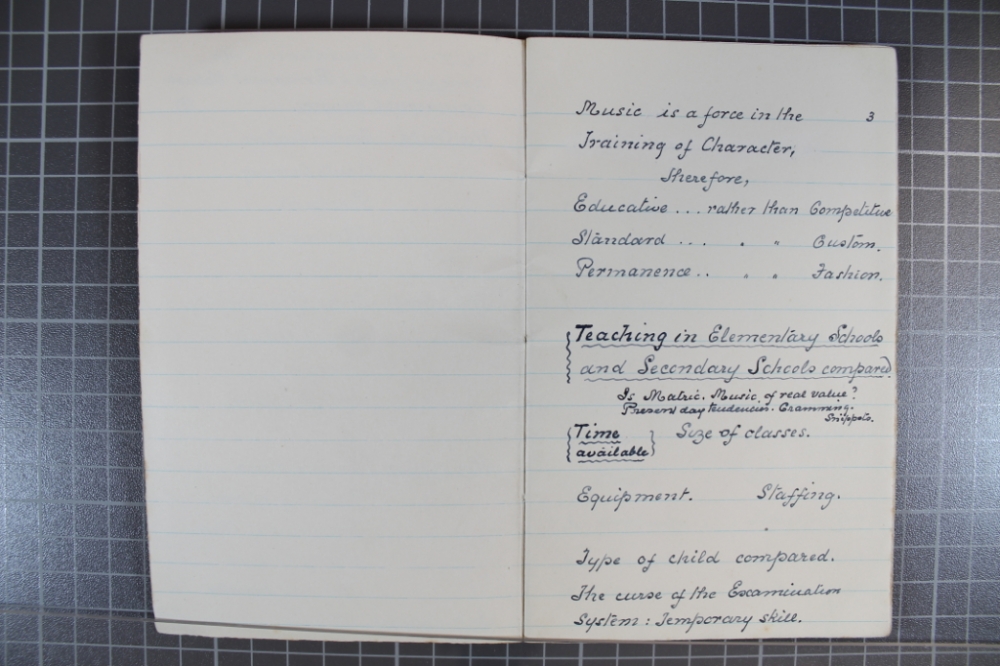 Music is a force in the 3
Training of Character,
therefore,
Educative ... rather than Competitive
Standard ... " " Custom.
Permanence .. " " Fashion.
Teaching in Elementary Schools
and Secondary Schools compared.
Is Matric. Music of real value?
Present day tendencies. Cramming.
Snippets.
Time Size of classes.
available
Equipment. Staffing.
Type of child compared.
The curse of the Examination
System: Temporary skill.